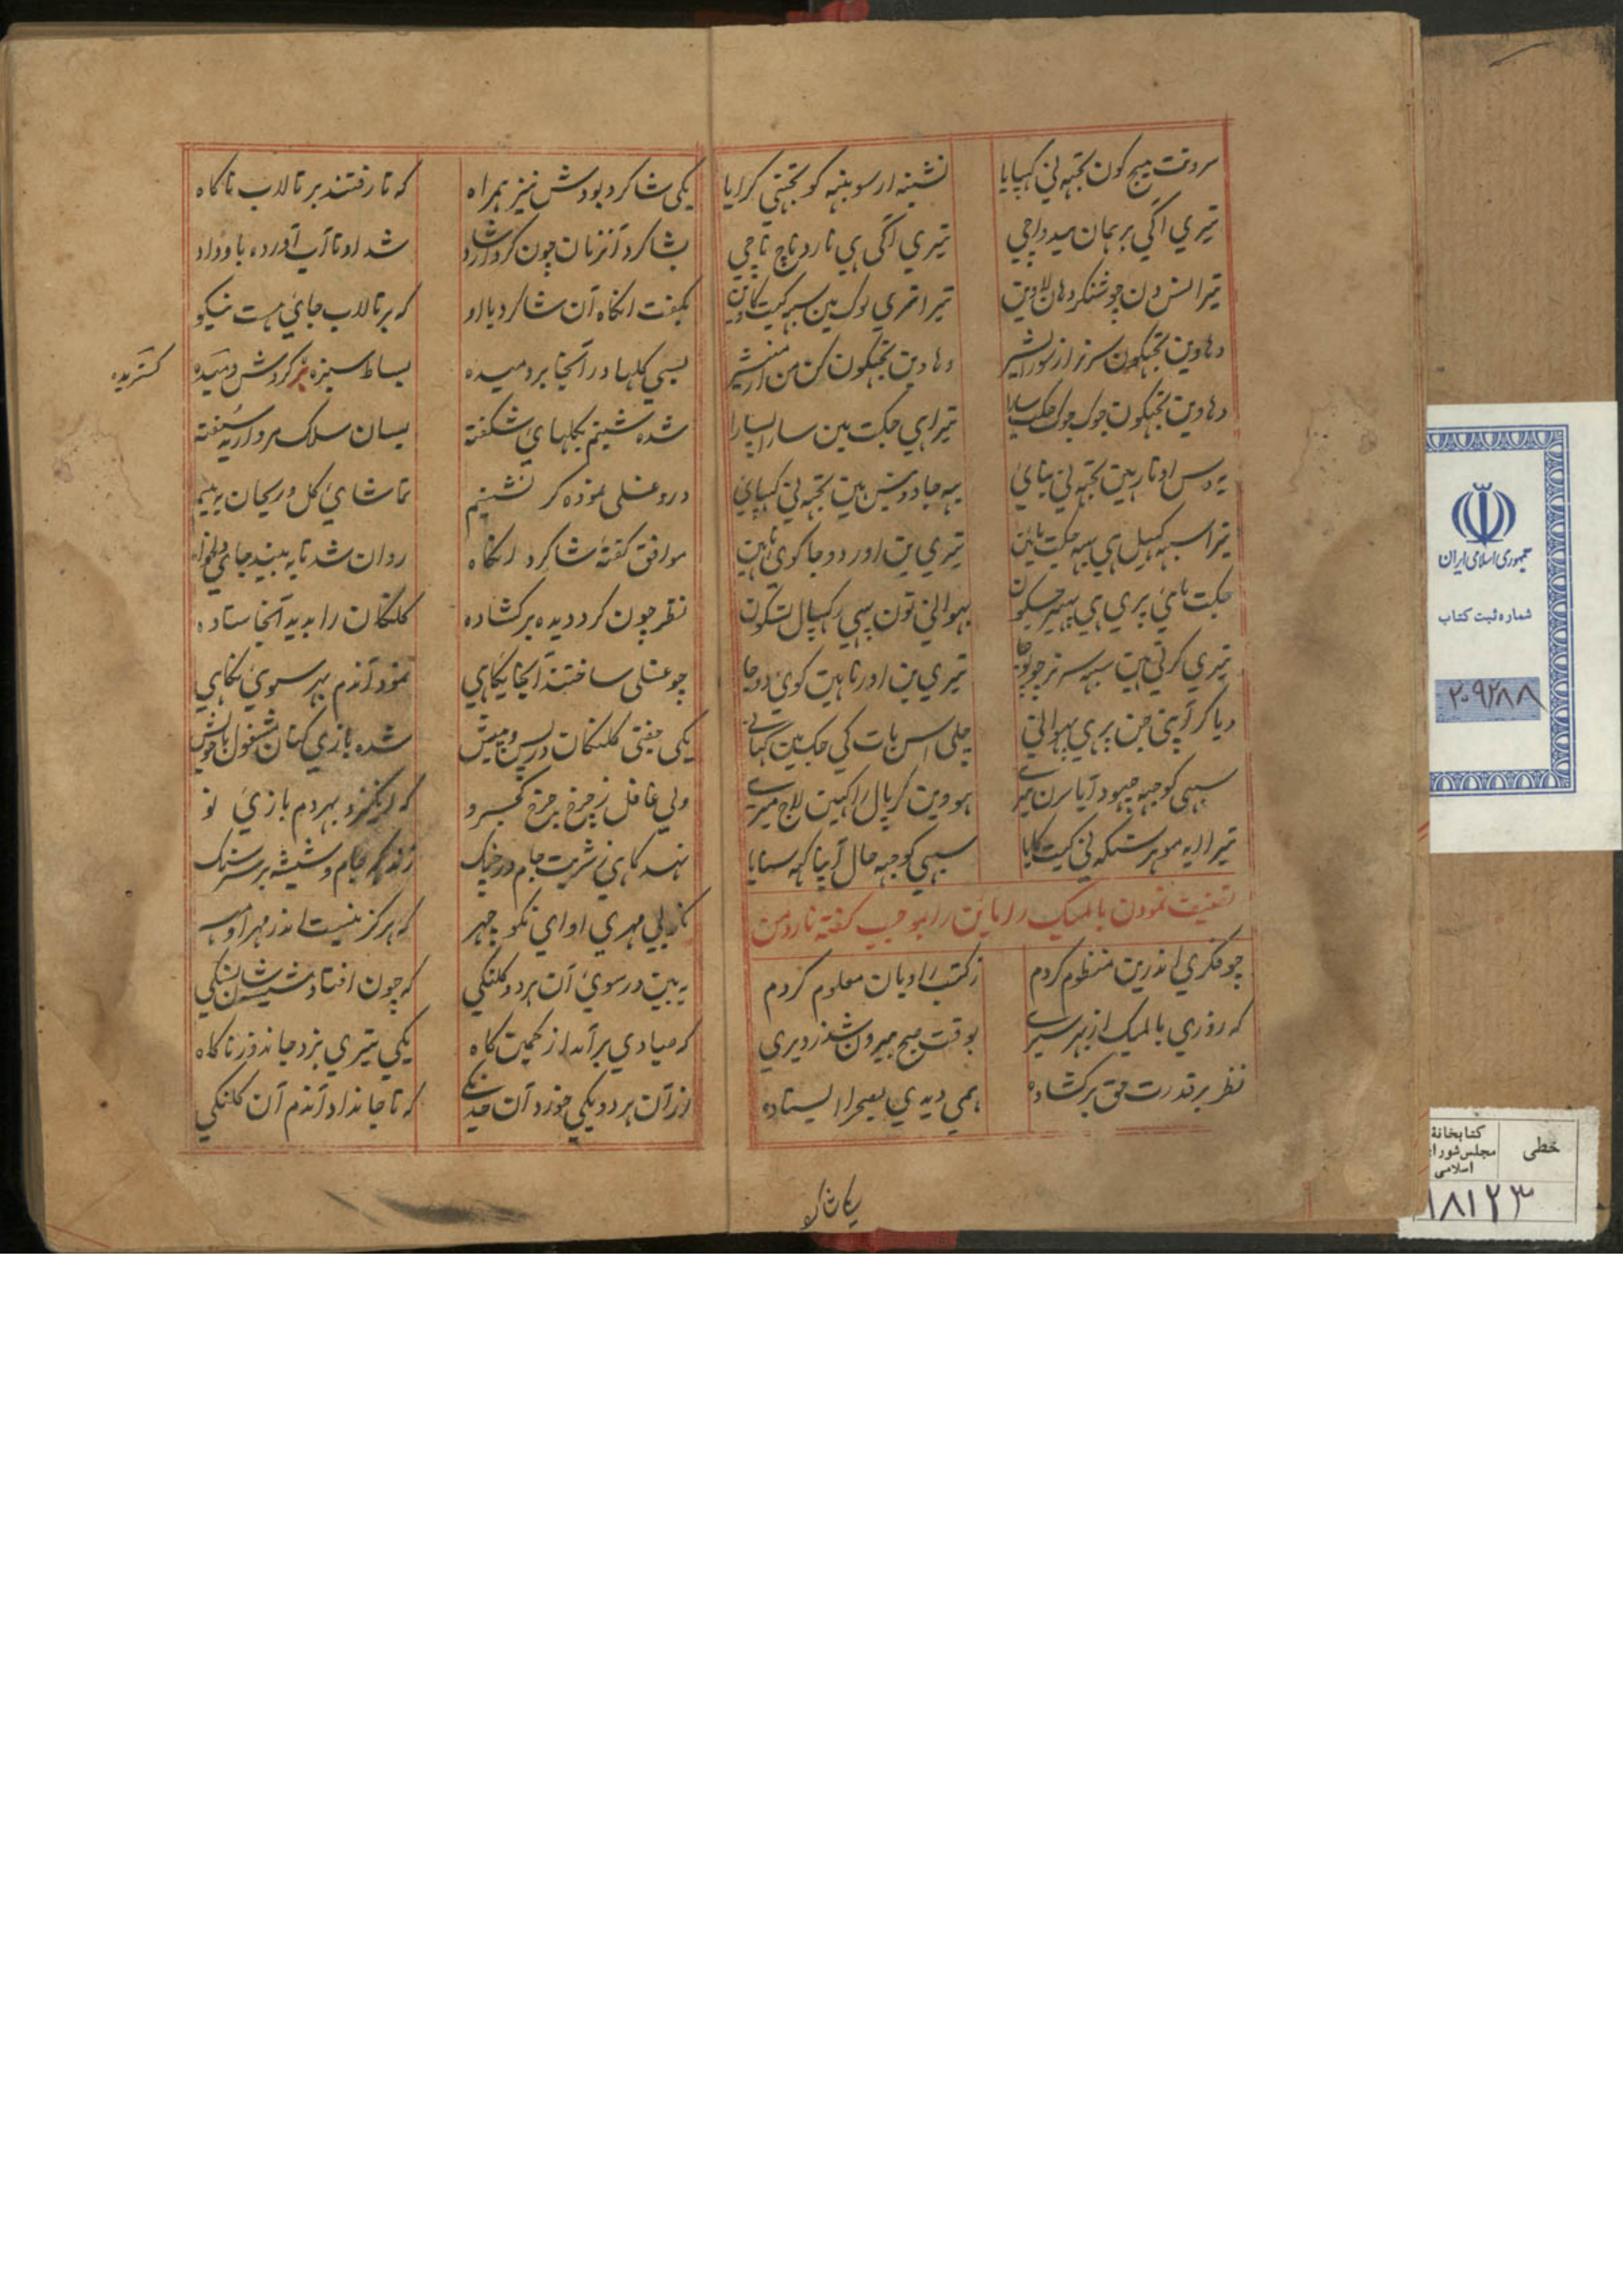 سروتت بیج کون تجهه نی کهپایا نشینه ارسو بنیه کو تجهتی کرایا
تیری اکی برهمان میدواچی تیری اکی هی نارد ناچ ناچی
تیرا نس دن جو شنکر دهان لاوین تیرا تمری لوک مین سبه کیت کاوین
دهاوین تجهکون سرنر از سور
دهاوین تجهکون جوک جوک جکت سارا تیرا هی جکت مین سارا پسارا
یه دس اوتار هین تجهه نی بنائ یه جادوش هین تجهه نی کهپائ
تیرا سبهه کهیل هی سبهه جکت مائین تیری بن اور دوجا کوی ناهین
جکت مائی پری هی بهیر بهوانی تون سهی رکهپال
تیری کرتی هین سبهه سرنر چو پوجا تیری بن اور ناهین کوی دوجا
دیا کر آپنی جن پر هی بهوانی چلی اس بات کی جک مین کهانی
سبهی کو جهه چهود آیا سرن میری هووین کرپال راکهین لاج میری
تیرا الیه موهر سنکه نی کیت کایا سبهی کو جهه حال آپنا کهه سنایا
تصنیف نمودن بالمیک راماین را بموجب کفته نارد من
چو فکری اندرین منظوم کردم ز کتب راویان معلوم کردم
که روزی بالمیک از بهر سیری بوقت صبح بیرون شد ز دیری
نظر بر قدرت حق برکشاده همی دیدی بصحرا ایستاده
یکی شاکرد
یکی شاکرد بودش نیز همراه که تا رفتند بر تالاب ناکاه
بشاکرد آنزمان چون کرد ارشاد شد او تا آب آورده باو داد
بکفت انکاه آن شاکرد با او که بر تالاب جائی هست نیکو
بسی کلها در آنجا بردمیده بساط سبزه بر کردش دمیده
کستریده
شده شبنم بکلهائ شکفته بسان سلک مروارید سفته
درو غسلی نموده کر نشینم تماشائ کل و ریحان ببینم
موافق کفتهٔ شاکرد انکاه روان شد تا به بیند جای دلخواه
نظر چون کرد دیده برکشاده کلنکان را بدید آنجا ستاده
چو غسلی ساختند آنجا یکاهی نمود آندم بهر سوئ نکاهی
یکی جفتی کلنکان در پس و پیش شده بازی کنان مشغول با خویش
ولی غافل ز چرخ چرخ کجرو که انکیزد بهر دم بازئ نو
نهد کاهی ز شربت جام در چنک زند که جام و شیشه بر سر سنک
ز بی مهری او ای نکو چهر که هرکز نیست اندر مهر او مهر
به بین در سوئ آن هر دو کلنکی که چون افتاد شیشه شان بسنکی
که صیادی برآمد از کمین کاه یکی تیری بزد جاندوز ناکاه
از آن هر دو یکی خورد آن خدنکی که تا جان داد آندم آن کلنکی
جمهوری اسلامی ایران
شماره ثبت کتاب
۲۰۹۲۸۸
خطی
کتابخانهٔ
مجلس شورای
اسلامی
۱۸۱۲۳